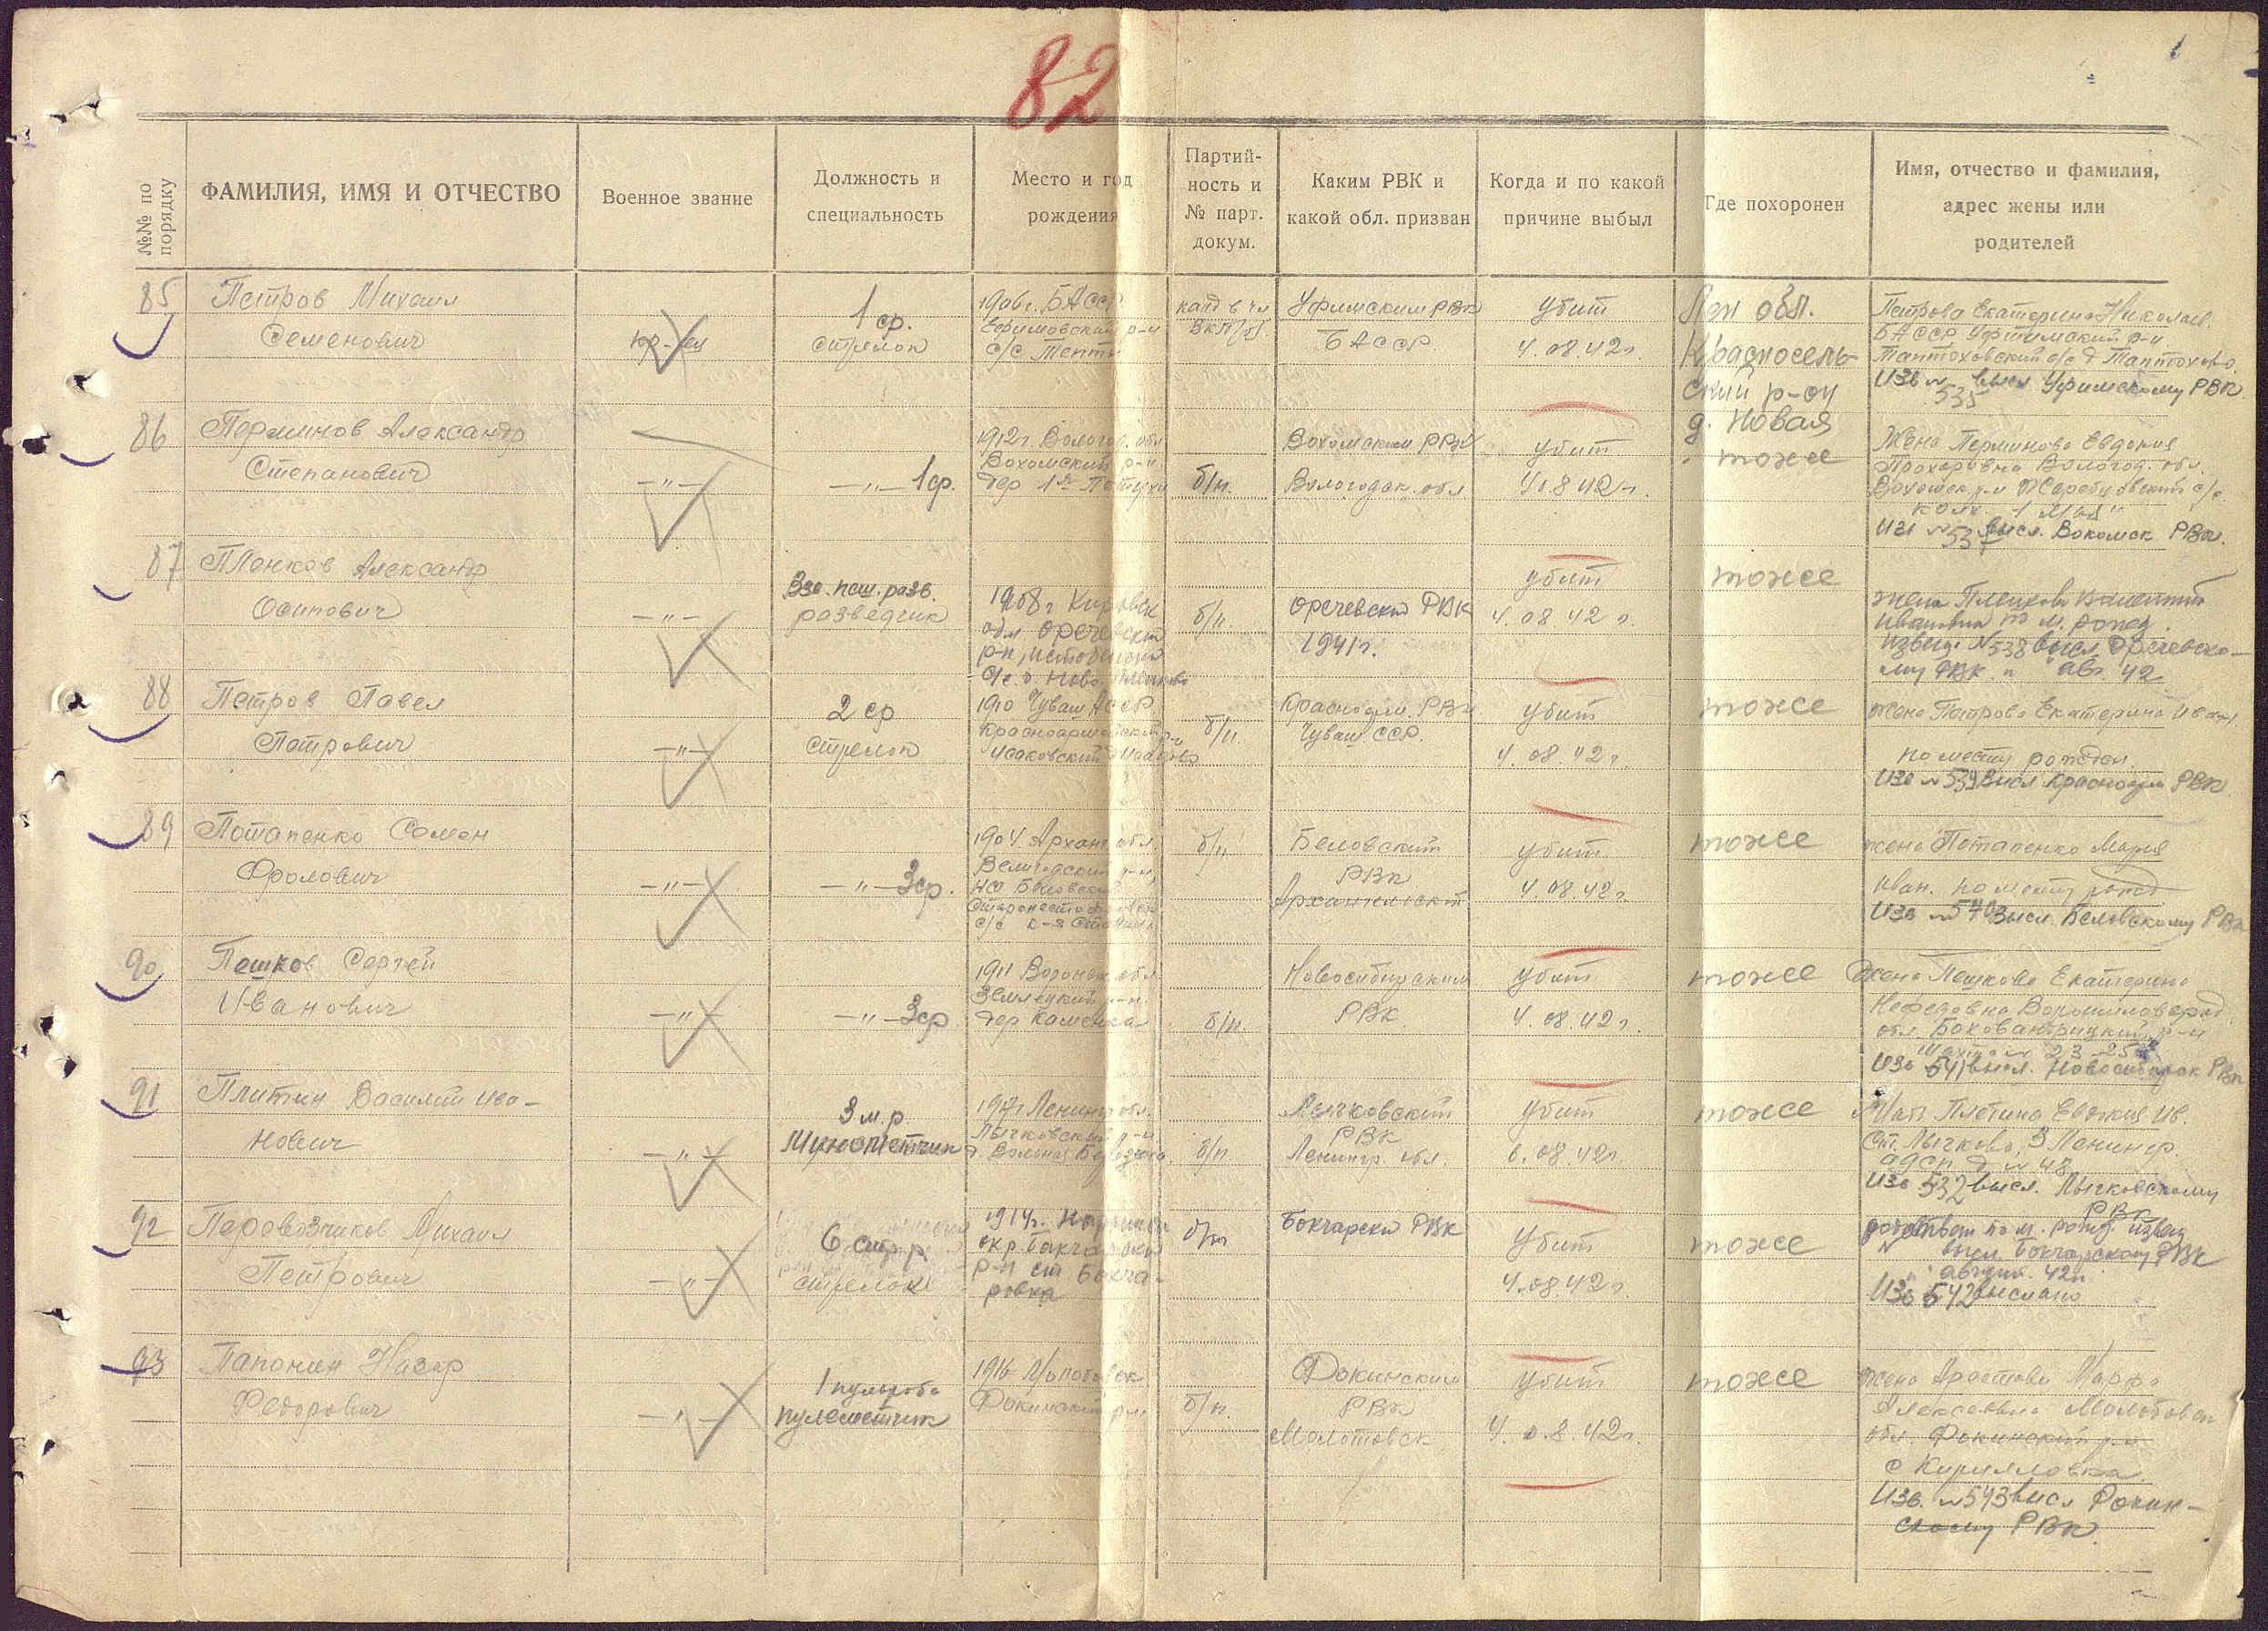 82
№№ по порядку
ФАМИЛИЯ, ИМЯ И ОТЧЕСТВО
Военное звание
Должность и
специальность
Место и год
рождения
Партий-
ность и
№ парт.
докум.
Каким РВК и
какой обл. призван
Когда и по какой
причине выбыл
Где похоронен
Имя, отчество и фамилия,
адрес жены или
родителей
85
Петров Михаил
Семенович
кр-ец
1 ср.
стрелок
1906г. БАССР
р-н
с/с
канд в чл
ВКП/б/.
Уфимским РВК
БАССР
убит
4.08.42г.
Лен обл.
Красносель-
ский р-он
д. Новая
Петрова Екатерина Николаев.
БАССР р-н
Таптоховский с/с д Таптохово
Изв № 535 высл Уфимскому РВК
86
Перминов Александр
Степанович
—"—
—"— 1 ср.
1912г. Вологод. обл
Вохомский р-н
дер
б/п.
Вохомским РВК
Вологодск. обл
убит
4.8.42г.
тоже
Жена Перминова Евдокия
Прохоровна Вологод. обл.
Вохомск р-н с/с
колх. 1 Мая"
Изв № 537 высл. Вохомск РВК.
87
Пленков Александр
Осипович
—"—
Взв. пеш. разв.
разведчик
1908г Кировск
обл. Оречевский
р-н,
с/с. д. Ново
б/п.
Оречевски РВК
1941г.
убит
4.08.42г.
тоже
жена Пленкова
Ивановна по м. рожд.
Извещ. №538 высл. Оречевско-
му РВК " " авг. 42
88
Петров Павел
Петрович
—"—
2 ср
стрелок
1910 Чуваш АССР
Красноармейский р-н
Исаковский
б/п
Красноарм. РВК
Чуваш ССР.
убит
4.08.42г.
тоже
жена Петрова Екатерина Иван.
по месту рожден.
Изв № 539 высл Красноарм РВК
89
Потапенко Семен
Фролович
—"—
—"— 3 ср.
1904 Арханг обл.
с/с
б/п
Беловский
РВК
Архангельский
убит
4.08.42г.
тоже
жена Потапенко Мария
Иван. по месту рожд
Изв № 540 высл. Беловскому РВК
90
Пешков Сергей
Иванович
—"—
—"— 3 ср
1911 Воронеж обл.
р-н.
дер Каменка
б/п.
Новосибирским
РВК
убит
4.08.42г.
тоже
Жена Пешкова Екатерина
Нефедовна Ворошиловград.
обл. Боковантрацитский р-н
Шахта № 23-25
Изв 541 высл. Новосибирск РВК
91
Плитин Василий Ива-
нович
—"—
3 м.р
Минометчик
Ленингр обл.
Лычковский р-н
б/п
Лычковский
РВК
Ленингр. обл.
убит
6.08.42г.
тоже
Мать Плетина Евдокия Ив.
ст. Лычково, 3 Ленингр.
д № 48
Изв 532 высл. Лычковскому
РВК
92
Перевозчиков Михаил
Петрович
—"—
6 стр р
стрелок
1914г. Нарымск
окр. Бакчарский
р-н ст Бакча-
ровка
б/п
Бокчарски РВК
Убит
4.08.42г.
тоже
по м. рожд. извещ
№ высл. Бокчарскому РВК
" " август. 42г
Изв 542 выслано
93
Папонин Назар
Федорович
—"—
1 пульрота
пулеметчик
1916
Фокинский р-н.
б/п.
Фокинским
РВК
Молотовск
Убит
4.0.8.42г.
тоже
жена Арастова Марфа
Алексеевна Молотовск
обл. Фокинский р-н
с Кирилловка
Изв. № 543 высл Фокин-
скому РВК.